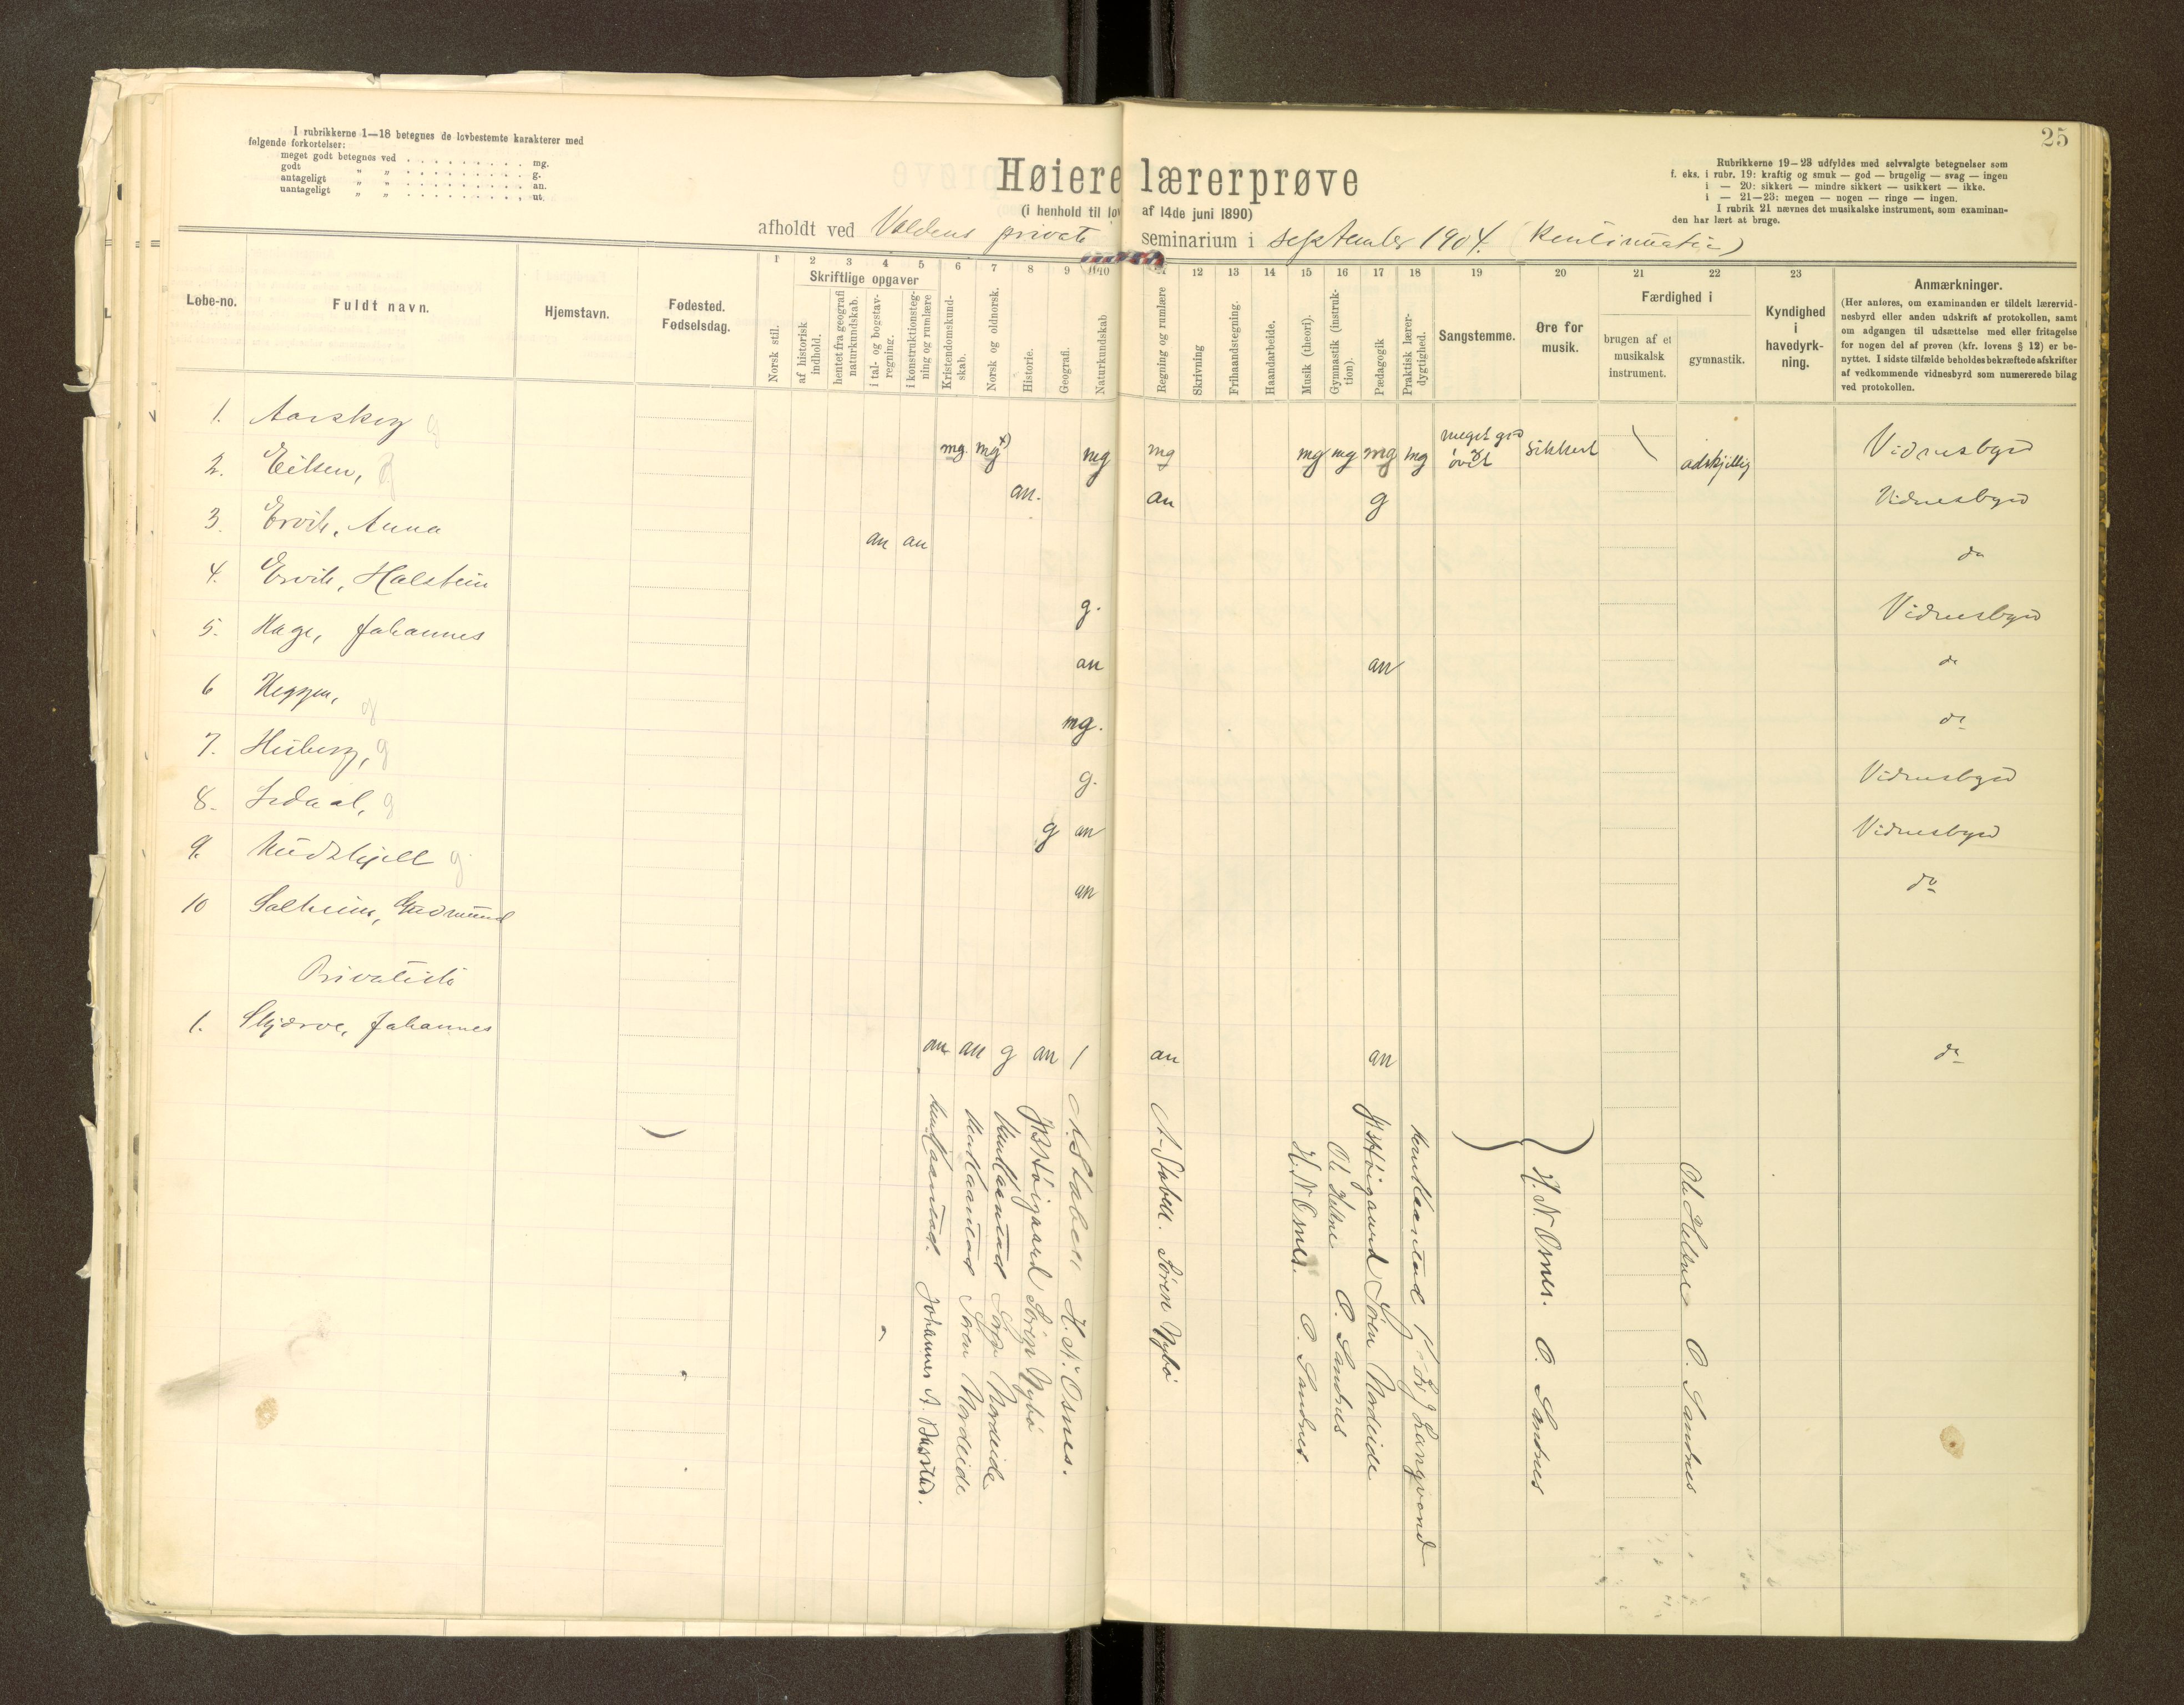 25
I rubrikkerne 1—18 betegnes de lovbestemte karakterer med
følgende forkortelser:
meget godt betegnes ved . . . . . . . . . mg.
godt " " . . . . . . . . . g.
antageligt " " . . . . . . . . . an.
uantageligt " " . . . . . . . . . ut.
Høiere lærerprøve
(i henhold til lov af 14de juni 1890)
afholdt ved Voldens private seminarium i september 1904. (Kontinuation)
Rubrikkerne 19—23 udfyldes med selvvalgte betegnelser som
f. eks. i rubr. 19: kraftig og smuk — god — brugelig — svag — ingen
i — 20: sikkert — mindre sikkert — usikkert — ikke.
i — 21—23: megen — nogen — ringe — ingen.
I rubrik 21 nævnes det musikalske instrument, som examinan-
den har lært at bruge.
1 2 3 4 5 6 7 8 9 10 11 12 13 14 15 16 17 18 19 20 21 22 23
Løbe-no.
Fuldt navn.
Hjemstavn.
Fødested.
Fødselsdag.
Skriftlige opgaver
Norsk stil.
af historisk
indhold.
hentet fra geografi
naturkundskab.
i tal- og bogstav-
regning.
i konstruktionsteg-
ning og rumlære
Kristendomskund-
skab.
Norsk og oldnorsk.
Historie.
Geografi.
Naturkundskab
Regning og rumlære
Skrivning
Frihaandstegning.
Haandarbeide.
Musik (theori).
Gymnastik (instruk-
tion).
Pædagogik
Praktisk lærer-
dygtighed.
Sangstemme.
Øre for
musik.
Færdighed i
brugen af et
musikalsk
instrument.
gymnastik.
Kyndighed
i
havedyrk-
ning.
Anmærkninger.
(Her anføres, om examinanden er tildelt lærervid-
nesbyrd eller anden udskrift af protokollen, samt
om adgangen til udsættelse med eller fritagelse
for nogen del af prøven (kfr. lovens § 12) er be-
nyttet. I sidste tilfælde beholdes bekræftede afskrifter
af vedkommende vidnesbyrd som numererede bilag
ved protokollen.
1. Aarskog g mg. mg x) mg mg mg mg mg mg meget god øvet sikkert \ adskjillig Vidnesbyrd
2. Eiken, g an. an g Vidnesbyrd
3. Ervik, Anna an an do
4. Ervik, Halstein g. Vidnesbyrd
5. Hage, Johannes an an do
6 Heggen, g mg. do
7. Hisberg, g g. Vidnesbyrd
8. Lidaal, g g an Vidnesbyrd
9. Mudskjell g an do
10 Solheim, Gudmund
Privatist
1. Skjærve, Johannes an an g an / an an do
Knut Kaarstad. Johannes A. Barstad.
Knut Kaarstad Søren Nordeide
Knut Kaarstad Søren Nordeide
M Høigaard Søren Nybø
A. Stabell H. N. Osnes.
A. Stabell. Søren Nybø
H. N. Osnes. O. Sandnes
O. Sandnes
M Høigaard Søren Nordeide
Knut Kaarstad Langvand
H. N. Osnes. O. Sandnes
O. Sandnes